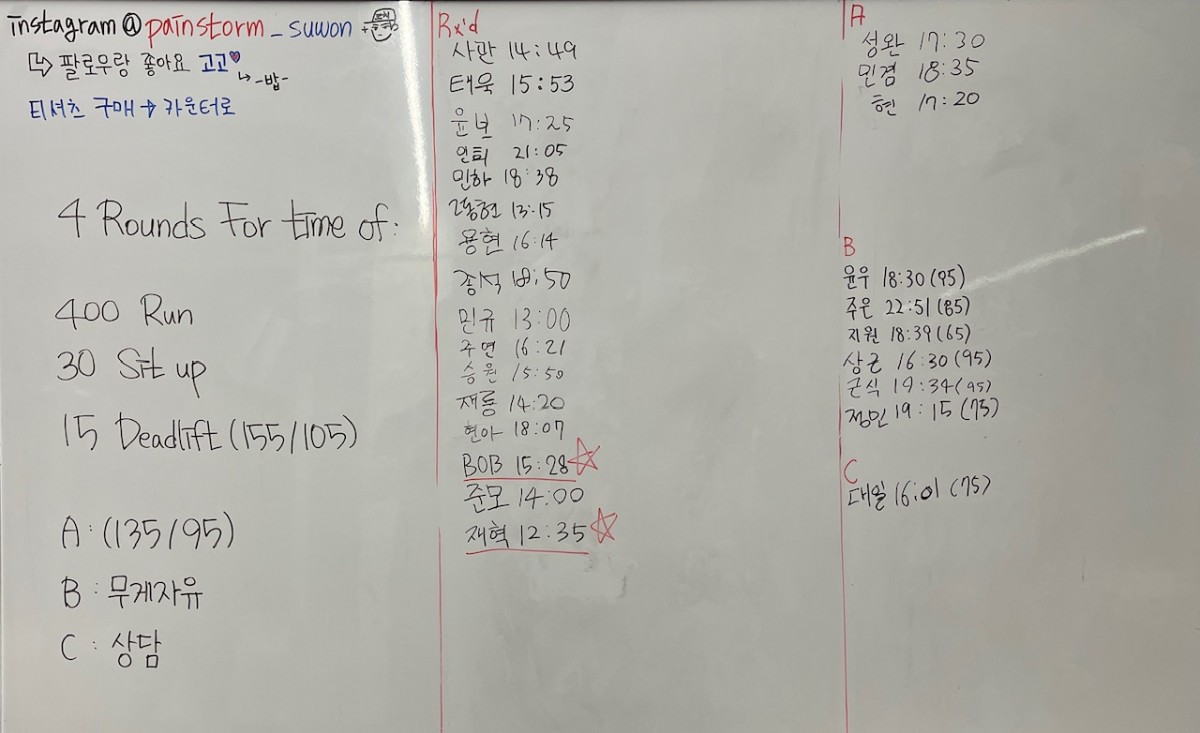 instagram@painstorm_suwon
↳ 팔로우랑 좋아요 고고♥
↳ -밥-
티셔츠 구매 → 카운터로
4 Rounds For time of:
400 Run
30 Sit up
15 Deadlift (155/105)
A : (135/95)
B : 무게자유
C : 상담
Rx'd
사만 14:49
태욱 15:53
윤보 17:25
인희 21:05
민하 18:38
13:15
용현 16:14
종석 18:50
민규 13:00
주연 16:21
승원 15:50
재룡 14:20
현아 18:07
BOB 15:28 ☆
준모 14:00
재혁 12:35 ☆
A
성완 17:30
민겸 18:35
현 17:20
B
윤우 18:30 (95)
주은 22:51 (85)
지원 18:39 (65)
상근 16:30 (95)
군식 19:34 (95)
정민 19:15 (75)
C
대일 16:01 (75)